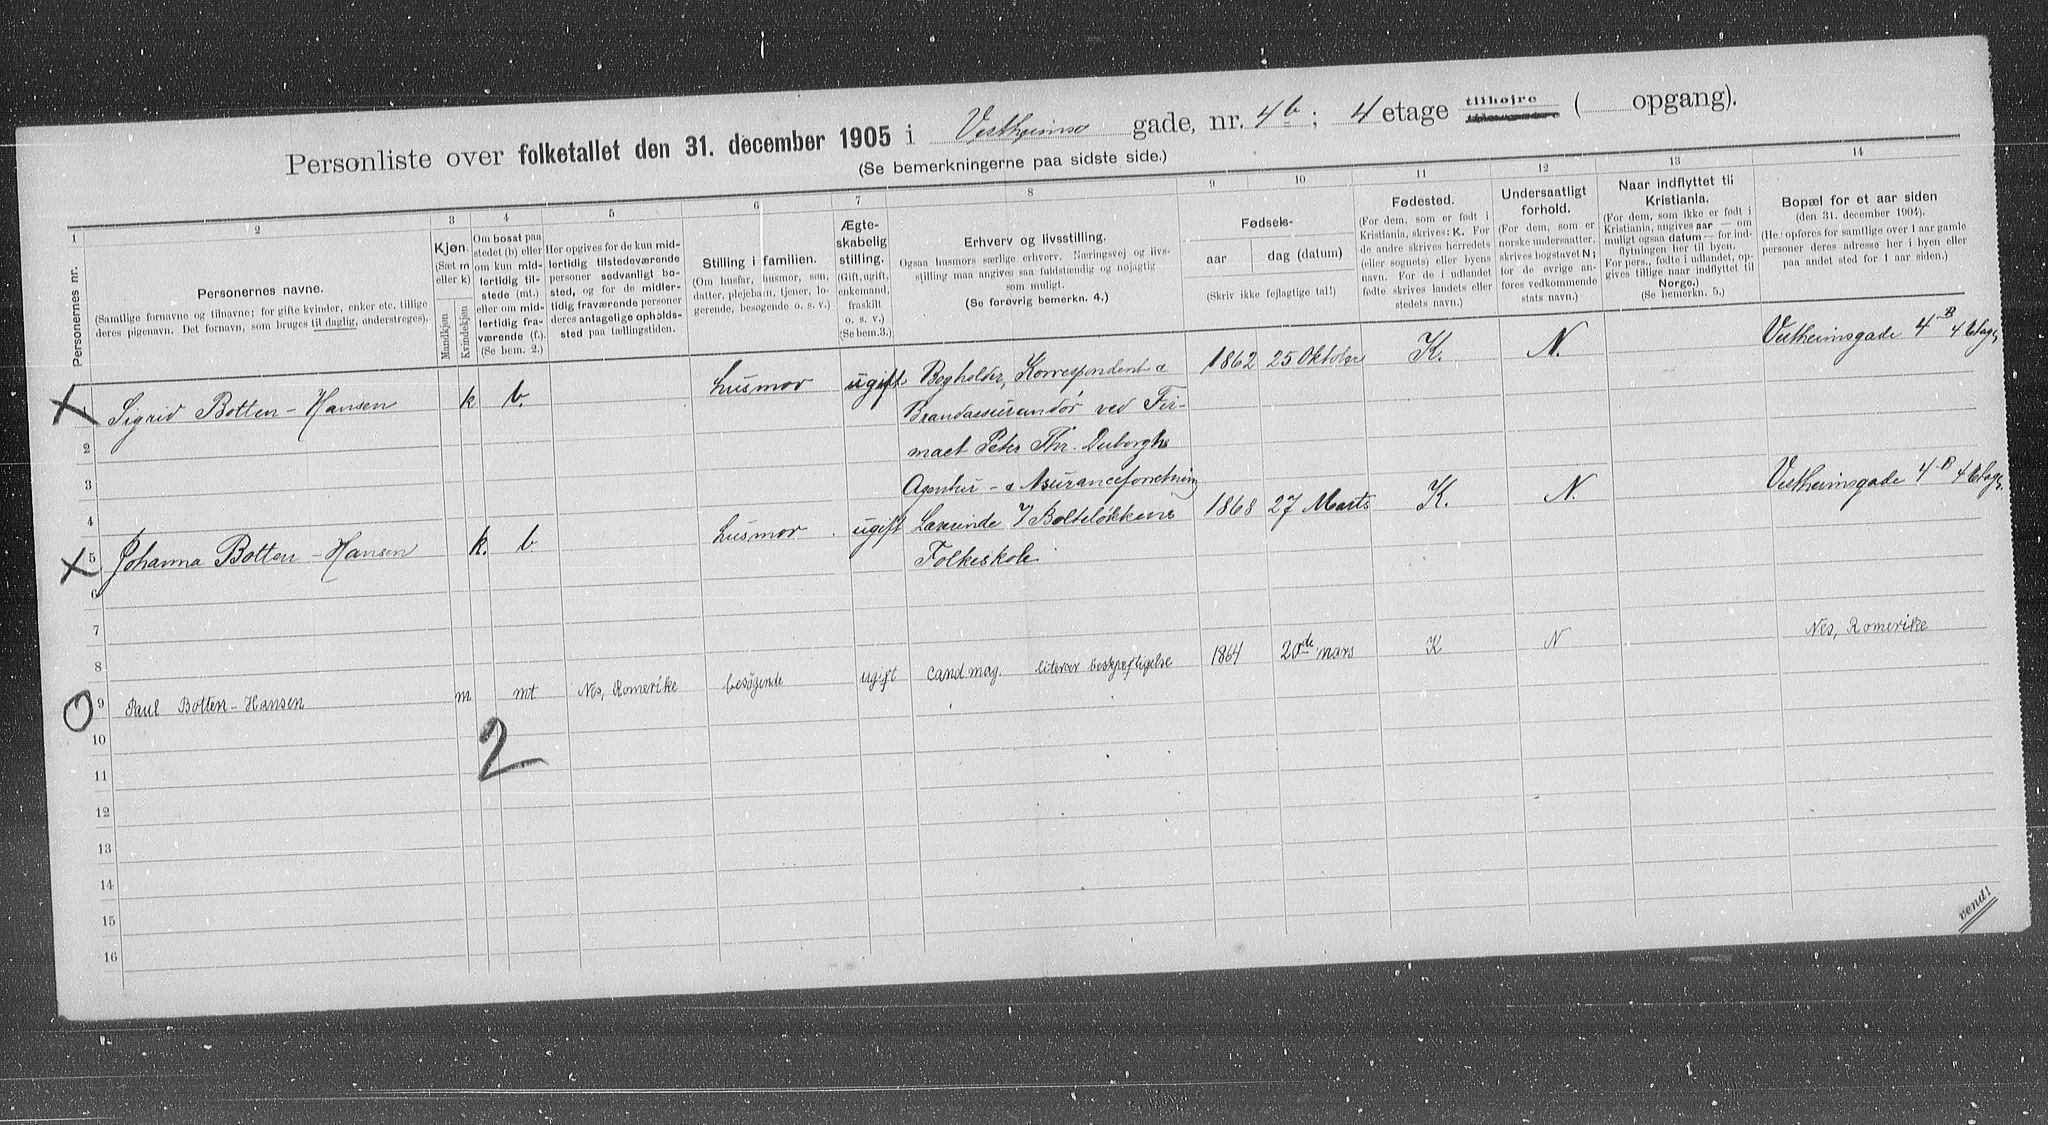 Personliste over folketallet den 31. december 1905 i Vestheims gade, nr. 4b; 4 etage tilhøjre ( opgang).
(Se bemerkningerne paa sidste side.)
1
Personernes nr.
2
Personernes navne.
(Samtlige fornavne og tilnavne; for gifte kvinder, enker etc. tillige
deres pigenavn. Det fornavn, som bruges til daglig, understreges).
3
Kjøn.
(Sæt m
eller k)
Mandkjøn
Kvindekjøn
4
Om bosat paa
stedet (b) eller
om kun mid-
lertidig til-
stede (mt.)
eller om mid-
lertidig fra-
værende (f.).
(Se bem. 2.)
5
Her opgives for de kun mid-
lertidig tilstedeværende
personer sedvanligt bo-
sted, og for de midler-
tidig fraværende personer
deres antagelige opholds-
sted paa tællingstiden.
6
Stilling i familien.
(Om husfar, husmor, søn,
datter, plejebarn, tjener, lo-
gerende, besøgende o. s. v.)
7
Ægte-
skabelig
stilling.
(Gift, ugift,
enkemand,
fraskilt
o. s. v.)
(Se bem.3.)
8
Erhverv og livsstilling.
Ogsaa husmors særlige erhverv. Næringsvej og livs-
stilling maa angives saa fuldstændig og nøjagtig
som muligt.
(Se forøvrig bemerkn. 4.)
Fødsels-
9
aar
10
dag (datum)
(Skriv ikke fejlagtige tal!)
11
Fødested.
(For dem, som er født i
Kristiania, skrives: K. For
de andre skrives herredets
(eller sognets) eller byens
navn. For de i udlandet
fødte skrives landets eller
stedets navn.)
12
Undersaatligt
forhold.
(For dem, som er
norske undersaatter,
skrives bogstavet N;
for de øvrige an-
føres vedkommende
stats navn.)
13
Naar indflyttet til
Kristiania.
(For dem, som ikke er født i
Kristiania, angives aar — om
muligt ogsaa datum — for ind-
flytningen her til byen.
For pers., fødte i udlandet, op-
gives tillige naar indflyttet til
Norge.)
(Se bemerkn. 5.)
14
Bopæl for et aar siden
(den 31. december 1904).
(Her opføres for samtlige over 1 aar gamle
personer deres adresse her i byen eller
paa andet sted for 1 aar siden.)
X 1 Sigrid Botten-Hansen k b. husmor ugift Bogholder, Korrespondent & 1862 25 Oktober K. N. Vestheimsgade 4 B 4 Etage
2 Brandassurandør ved Fir-
3 maet Peter Thr. Duborghs
4 Agentur- & Assuranceforretning
X 5 Johanna Botten-Hansen k. b husmor. ugift Lærerinde v/ Bolteløkkens 1868 27 Marts K. N. Vestheimsgade 4 B 4 Etage
6 Folkeskole
7
8
O 9 Paul Botten-Hansen m mt Nes, Romerike besøgende ugift cand mag. literær beskjæftigelse 1864 20de mars K N Nes, Romerike
2
10
11
12
13
14
15
16
vend!